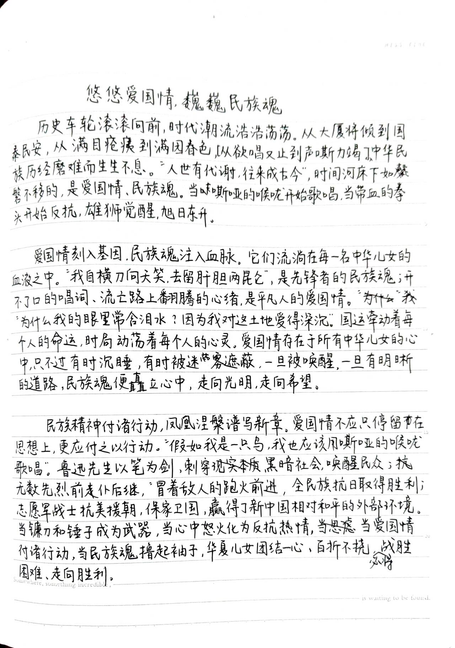 悠悠爱国情,巍巍民族魂
历史车轮滚滚向前,时代潮流浩浩荡荡。从大厦将倾到国
泰民安,从满目疮痍到满园春色,从欲唱又止到声嘶力竭,中华民
族历经磨难而生生不息。“人世有代谢,往来成古今”,时间河床下如磐
磐不移的,是爱国情、民族魂。当嘶哑的喉咙开始歌唱,当带血的拳
头开始反抗,雄狮觉醒,旭日东升。
爱国情刻入基因,民族魂注入血脉。它们流淌在每一名中华儿女的
血液之中。“我自横刀向天笑,去留肝胆两昆仑”,是先锋者的民族魂;开
不了口的唱词、流亡路上翻腾的心绪,是平凡人的爱国情。“为什么“我
“为什么我的眼里常含泪水?因为我对这土地爱得深沉。国运牵动着每
个人的命运,时局动荡着每个人的心灵。爱国情存在于所有中华儿女的心
中,只不过有时沉睡,有时被迷雾遮蔽,一旦被唤醒,一旦有明晰
的道路,民族魂便矗立心中,走向光明,走向希望。
民族精神付诸行动,凤凰涅槃谱写新章。爱国情不应只停留在
思想上,更应付之以行动。“假如我是一只鸟,我也应该用嘶哑的喉咙
歌唱”。鲁迅先生以笔为剑,刺穿现实本质黑暗社会,唤醒民众;抗
无数先烈前走仆后继,“冒着敌人的炮火前进,全民族抗日取得胜利;
志愿军战士抗美援朝,保家卫国,赢得了新中国相对和平的外部环境。
当镰刀和锤子成为武器,当心中怒火化为反抗热情,当爱国情
付诸行动,当民族魂撸起袖子,华夏儿女团结一心、百折不挠,必将战胜
困难、走向胜利。